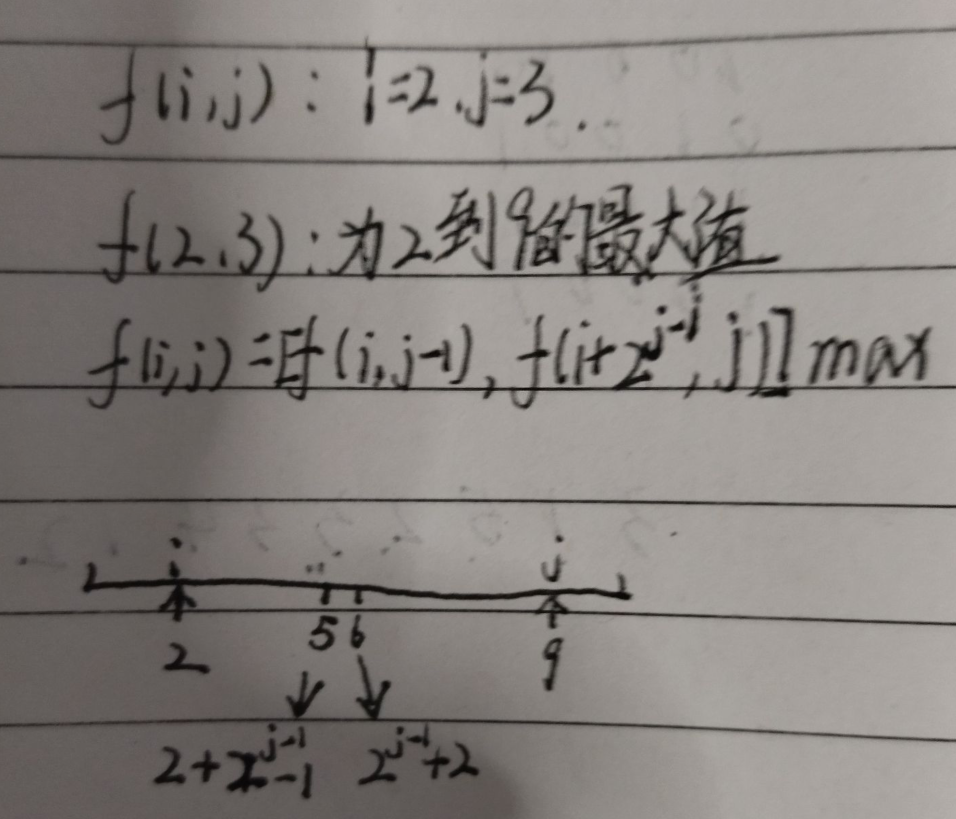 f(i,j): i=2,j=3.
f(2,3):为2到9的最大值
f(i,j)=[f(i,j-1),f(i+2^{j-1},j)]max
i j
5 6
2 9
2+2^{j-1}-1 2^{j-1}+2